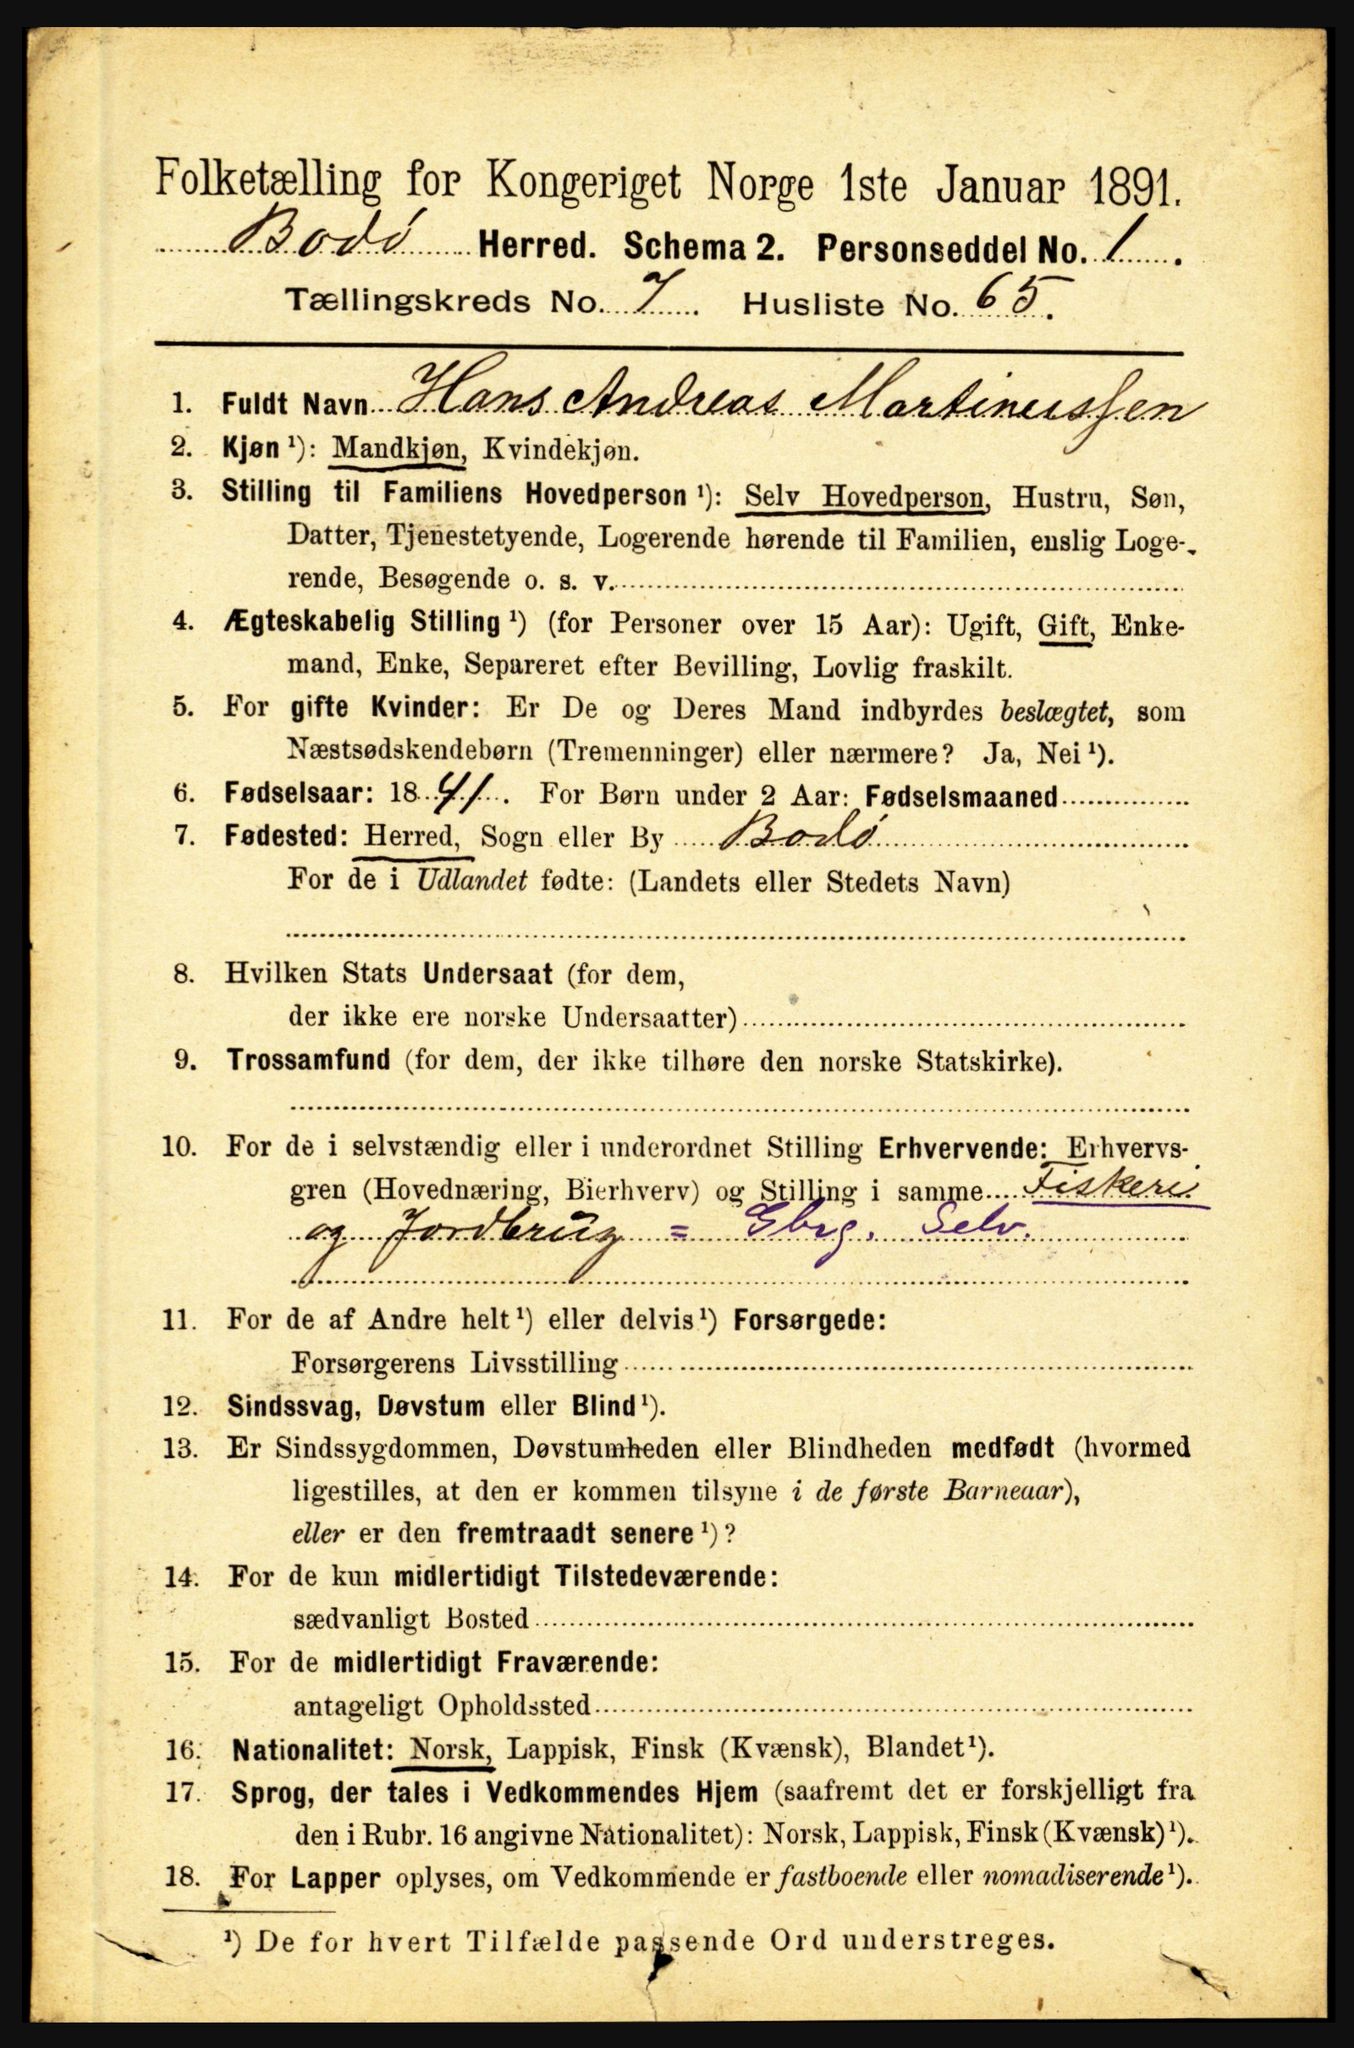 Folketælling for Kongeriget Norge 1ste Januar 1891.
Bodø Herred. Schema 2. Personseddel No. 1.
Tællingskreds No. 7. Husliste No. 65.
1. Fuldt Navn Hans Andreas Martinussen
2. Kjøn ¹): Mandkjøn, Kvindekjøn.
3. Stilling til Familiens Hovedperson ¹): Selv Hovedperson, Hustru, Søn,
Datter, Tjenestetyende, Logerende hørende til Familien, enslig Loge-
rende, Besøgende o. s. v.
4. Ægteskabelig Stilling ¹) (for Personer over 15 Aar): Ugift, Gift, Enke-
mand, Enke, Separeret efter Bevilling, Lovlig fraskilt.
5. For gifte Kvinder: Er De og Deres Mand indbyrdes beslægtet, som
Næstsødskendebørn (Tremenninger) eller nærmere? Ja, Nei ¹).
6. Fødselsaar: 1841. For Børn under 2 Aar: Fødselsmaaned
7. Fødested: Herred, Sogn eller By Bodø
For de i Udlandet fødte: (Landets eller Stedets Navn)
8. Hvilken Stats Undersaat (for dem,
der ikke ere norske Undersaatter)
9. Trossamfund (for dem, der ikke tilhøre den norske Statskirke).
10. For de i selvstændig eller i underordnet Stilling Erhvervende: Erhvervs-
gren (Hovednæring, Bierhverv) og Stilling i samme Fiskeri
og Jordbrug = Gbrg. Selv.
11. For de af Andre helt ¹) eller delvis ¹) Forsørgede:
Forsørgerens Livsstilling
12. Sindssvag, Døvstum eller Blind ¹).
13. Er Sindssygdommen, Døvstumheden eller Blindheden medfødt (hvormed
ligestilles, at den er kommen tilsyne i de første Barneaar),
eller er den fremtraadt senere ¹)?
14. For de kun midlertidigt Tilstedeværende:
sædvanligt Bosted
15. For de midlertidigt Fraværende:
antageligt Opholdssted
16. Nationalitet: Norsk, Lappisk, Finsk (Kvænsk), Blandet ¹).
17. Sprog, der tales i Vedkommendes Hjem (saafremt det er forskjelligt fra
den i Rubr. 16 angivne Nationalitet): Norsk, Lappisk, Finsk (Kvænsk) ¹).
18. For Lapper oplyses, om Vedkommende er fastboende eller nomadiserende ¹).
¹) De for hvert Tilfælde passende Ord understreges.